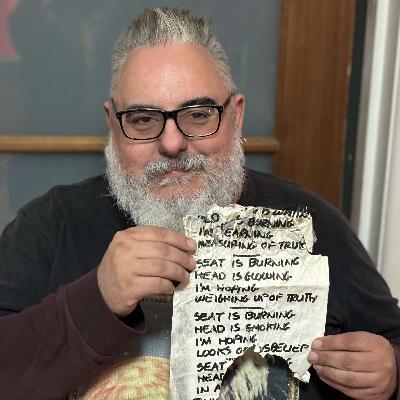 IS BURNING
I'M YEARNING
MEASURING OF TRUTH
SEAT IS BURNING
HEAD IS GLOWING
I'M HOPING
WEIGHING UP OF TRUTH
SEAT IS BURNING
HEAD IS SMOKING
I'M HOPING
LOOKS OF DISBELIEF
SEAT
HEAD
IN A